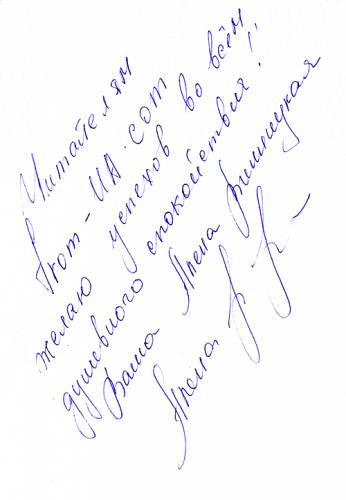 Читателям
From-UA.com
желаю успехов во всём,
душевного спокойствия!!
Ваша Алена Винницкая
Алена В